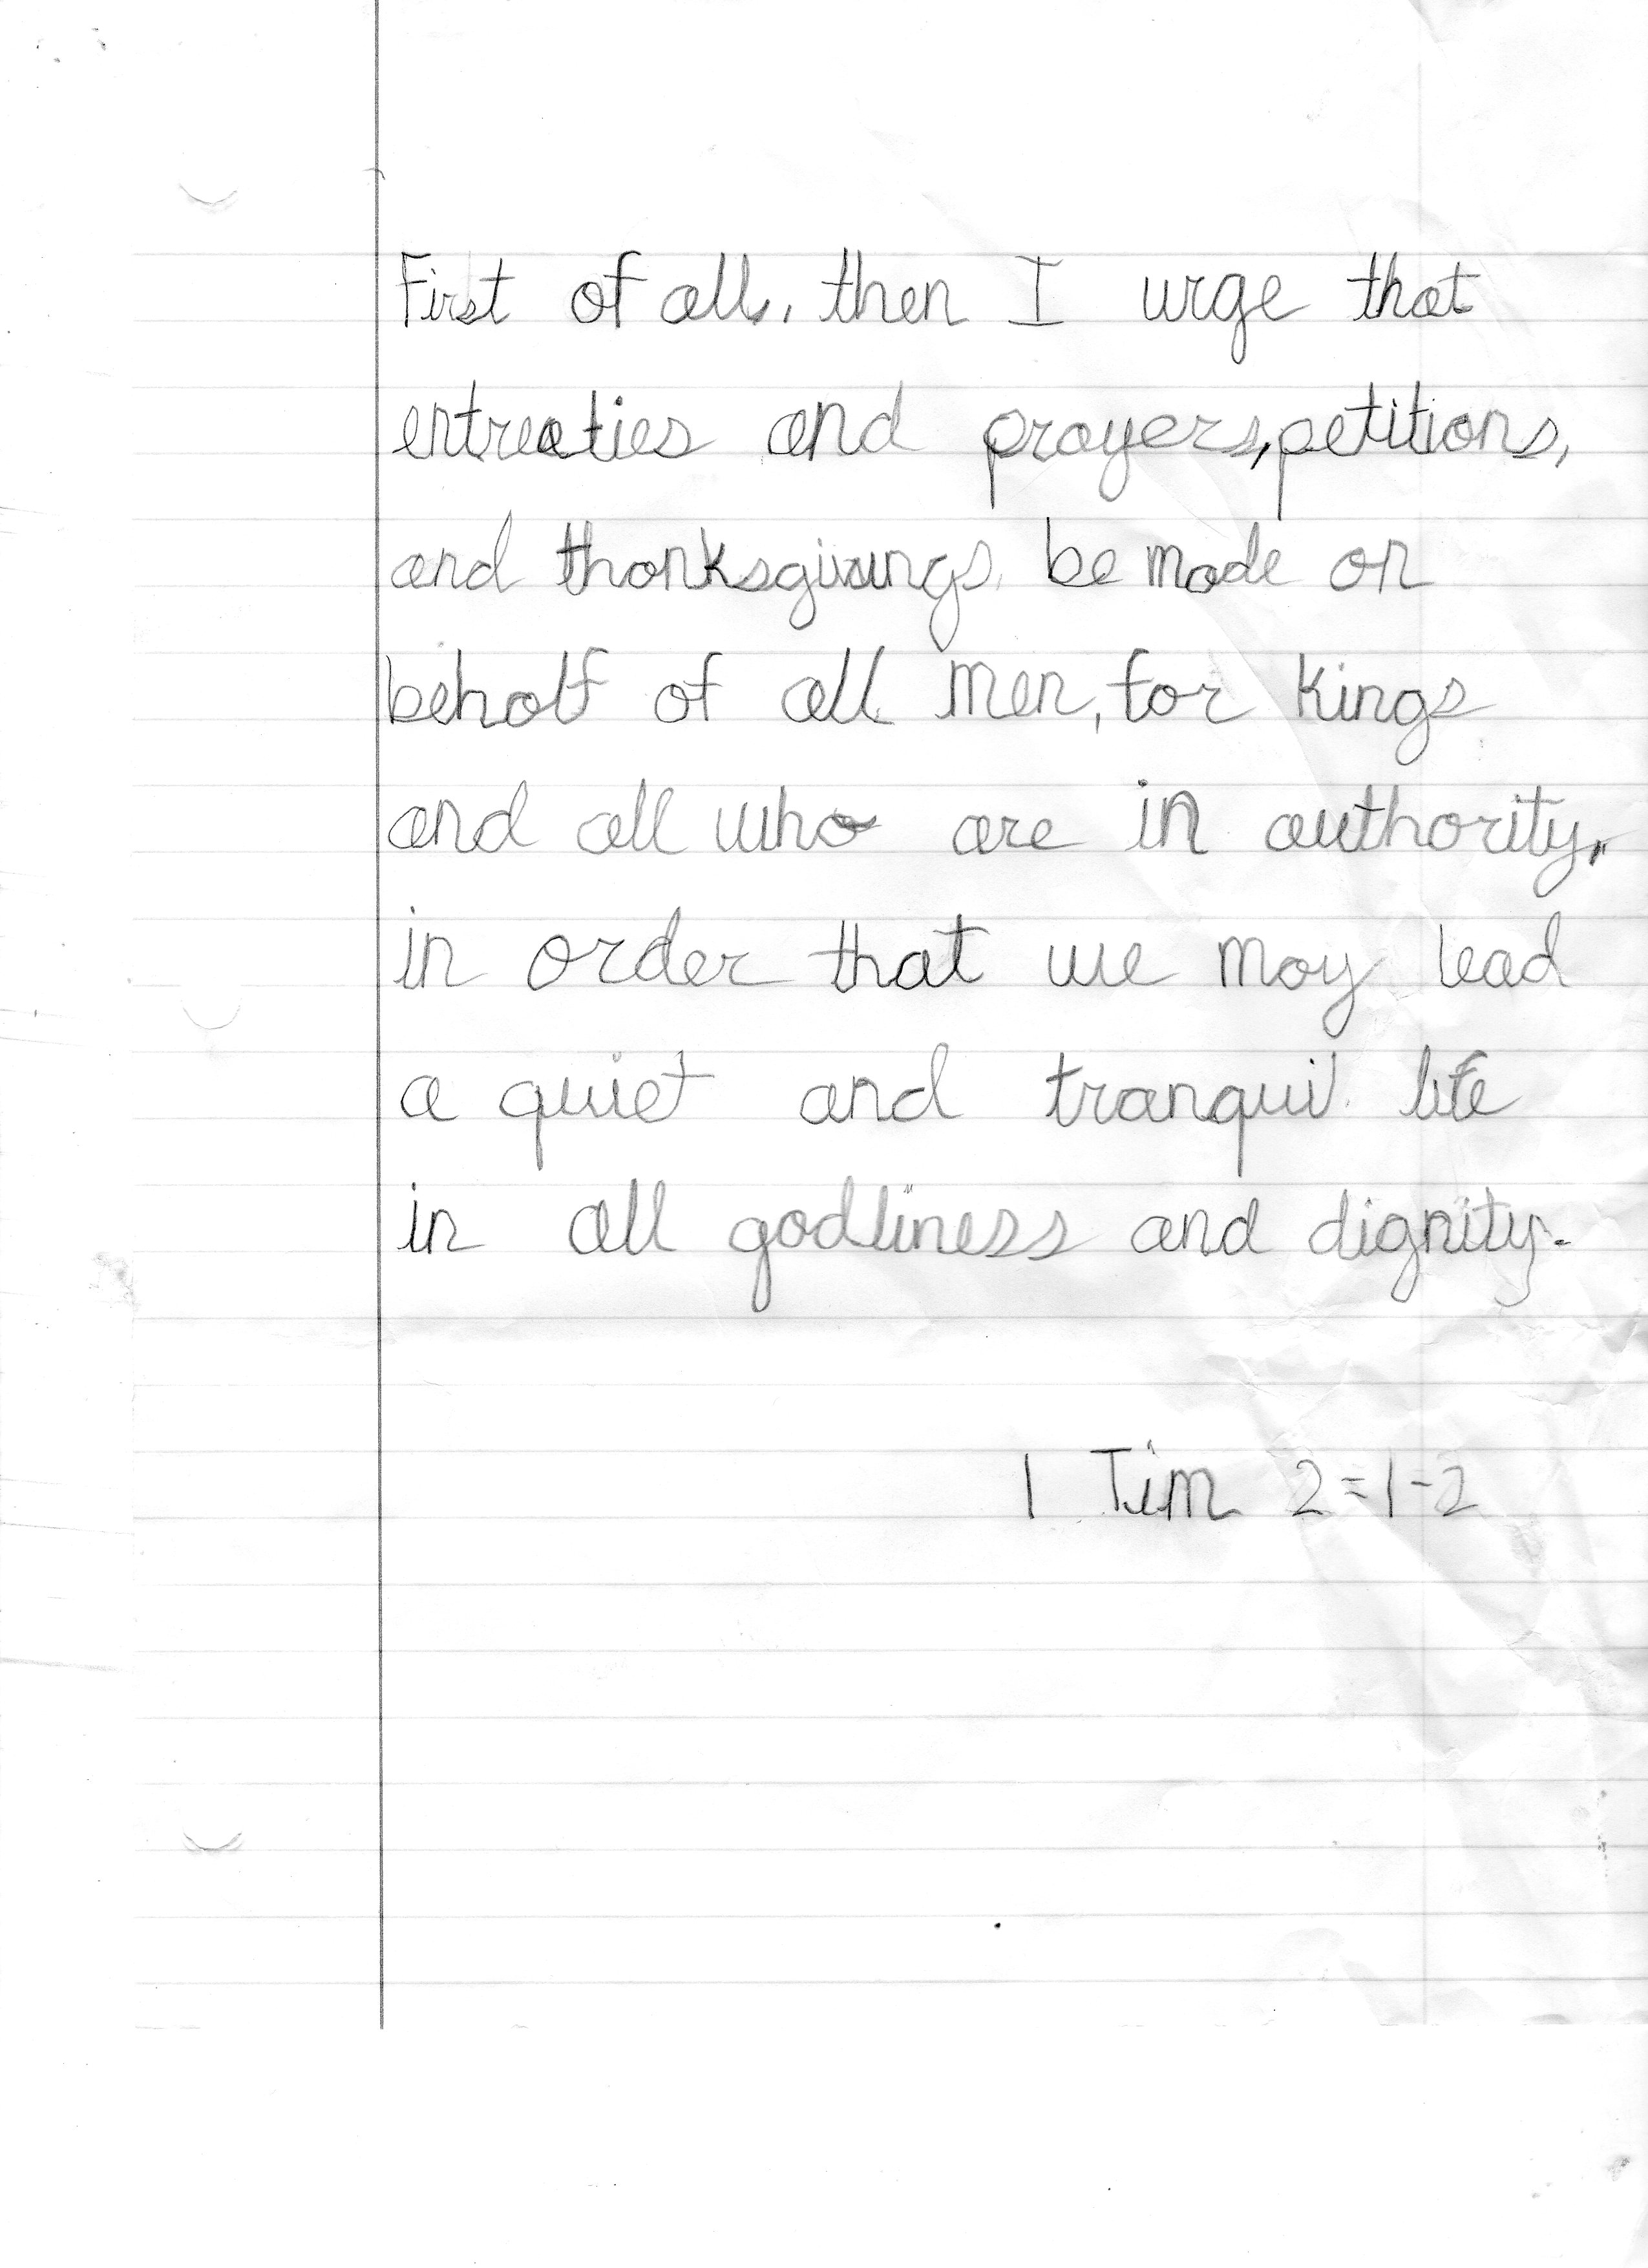 First of all, then I urge that
entreaties and prayers, petitions,
and thanksgivings, be made on
behalf of all men, for kings
and all who are in authority,
in order that we may lead
a quiet and tranquil life
in all godliness and dignity.
1 Tim 2=1-2